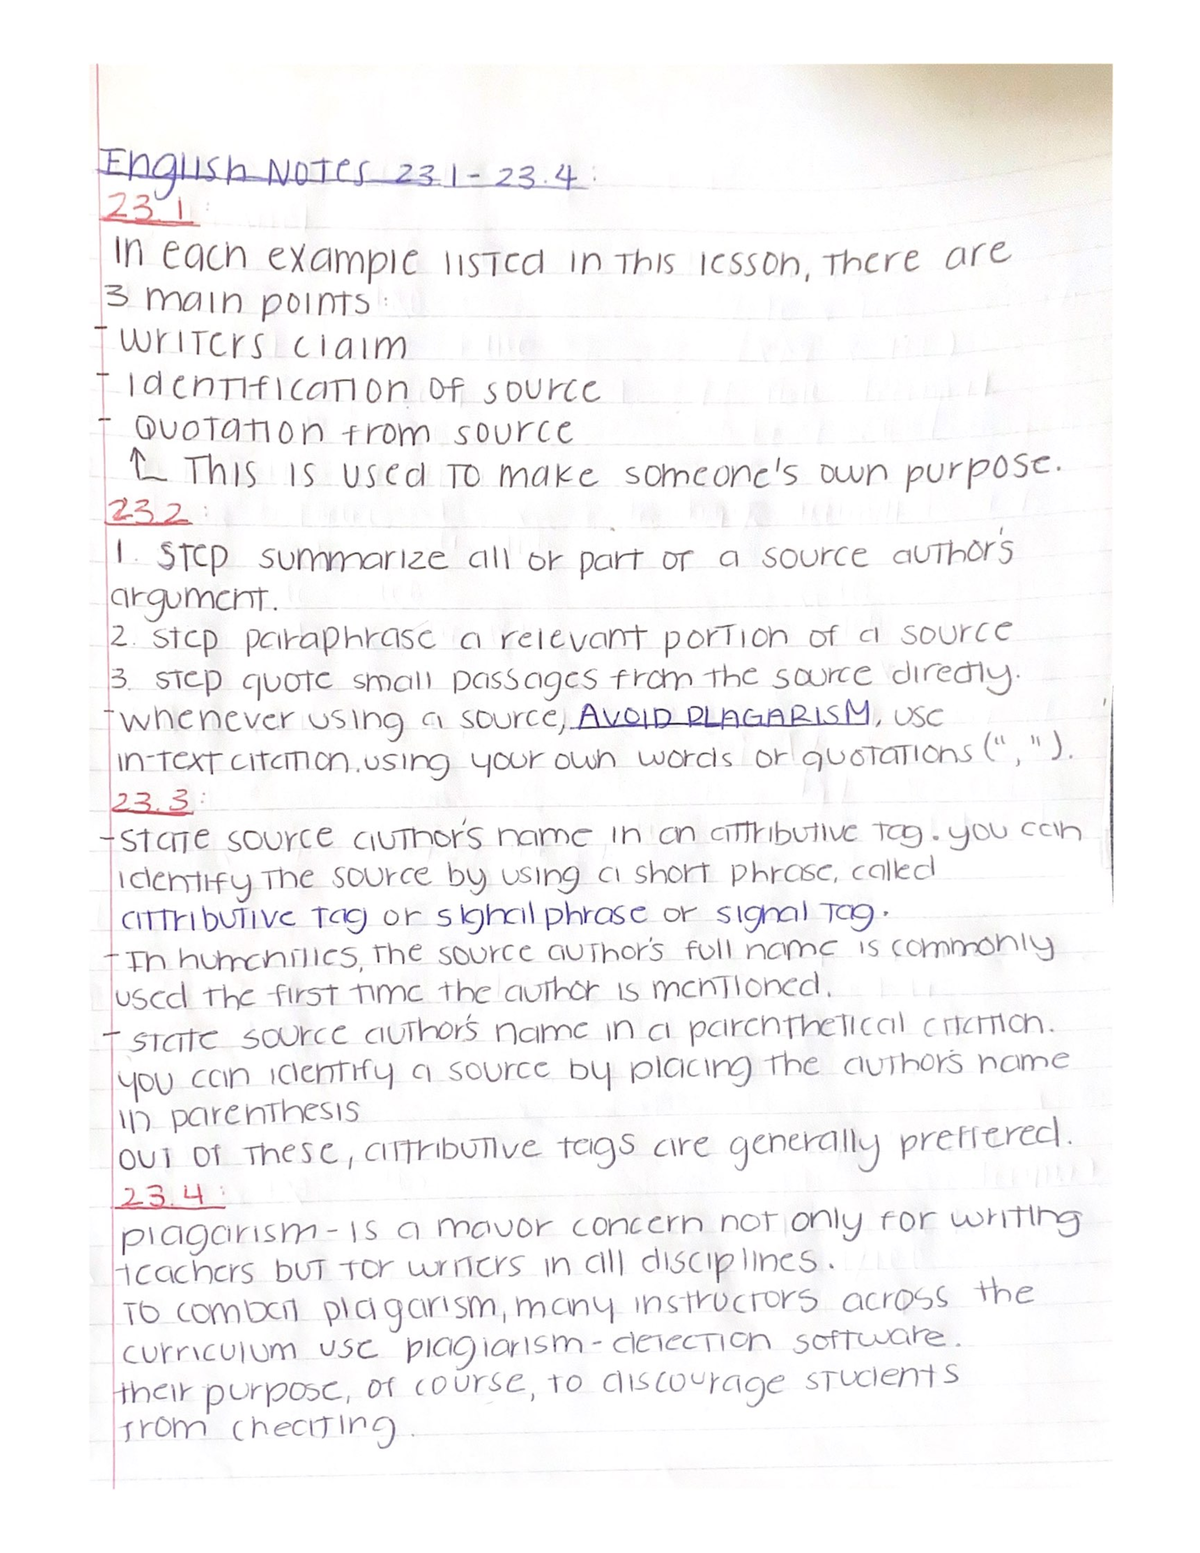 English Notes 23.1 - 23.4:
23.1:
In each example listed in this lesson, there are
3 main points:
- writers claim
- identification of source
- Quotation from source
↑ This is used to make someone's own purpose.
23.2:
1. Step summarize all or part of a source author's
argument.
2. step paraphrase a relevant portion of a source
3. step quote small passages from the source directly.
- whenever using a source, AVOID PLAGARISM, use
in-text citation. using your own words or quotations (" , ").
23.3:
- State source author's name in an attributive tag. you can
identify the source by using a short phrase, called
attributive tag or signal phrase or signal tag.
- In humanities, the source author's full name is commonly
used the first time the author is mentioned.
- state source author's name in a parenthetical citation.
you can identify a source by placing the author's name
in parenthesis
out of these, attributive tags are generally preffered.
23.4:
plagarism - is a mavor concern not only for writing
teachers but for writers in all disciplines.
To combat plagarism, many instructors across the
curriculum use plagiarism - detection software.
their purpose, of course, to discourage students
from cheating.